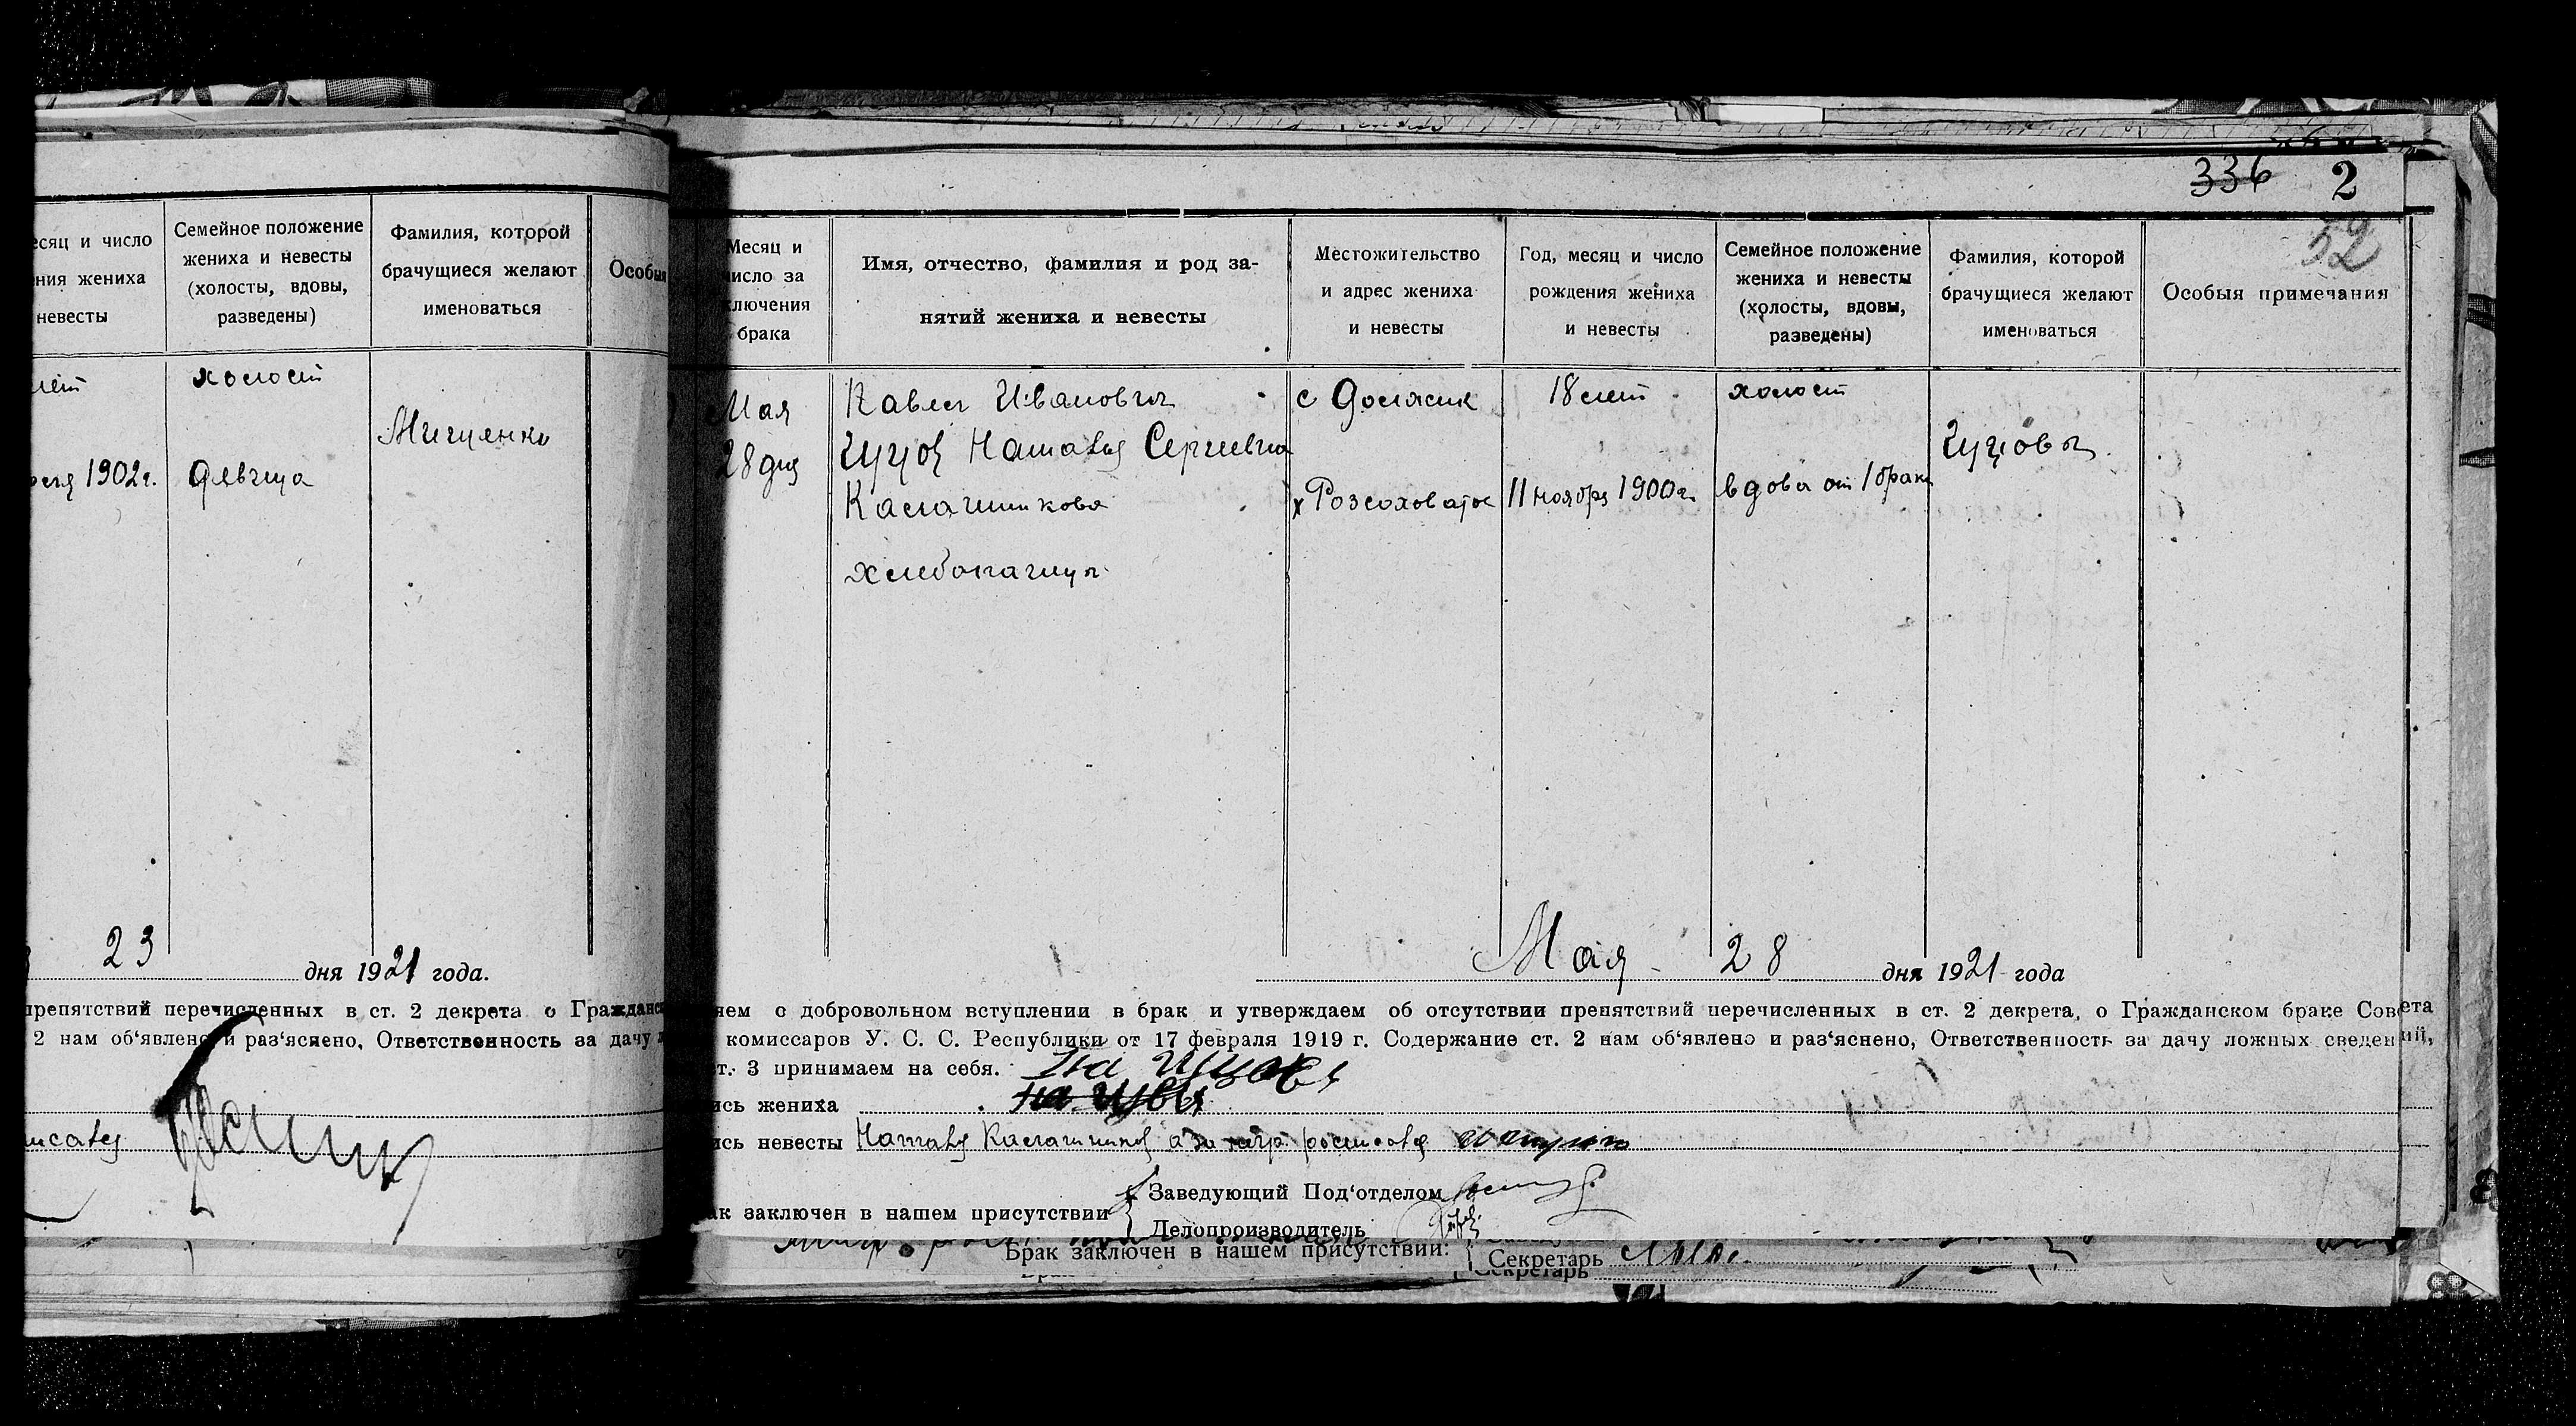 336 2
52
есяц и число
ния жениха
невесты
Семейное положение
жениха и невесты
(холосты, вдовы,
разведены)
Фамилия, которой
брачущиеся желают
именоваться
Особыя
лет
холост
Мищенко
1902 г.
девица
23
дня 1921 года.
препятствий перечисленных в ст. 2 декрета о Гражданск
2 нам об'явлено и раз'яснено, Ответственность за дачу
Месяц и
число за
ключения
брака
Имя, отчество, фамилия и род за-
нятий жениха и невесты
Местожительство
и адрес жениха
и невесты
Год, месяц и число
рождения жениха
и невесты
Семейное положение
жениха и невесты
(холосты, вдовы,
разведены)
Фамилия, которой
брачущиеся желают
именоваться
Особыя примечания
Мая
28 дня
Павел Иванович
Наталья Сергиевна
Калашникова
хлебопашцы
с
х Розсоховатое
18 лет
11 ноября 1900 г.
холост
вдова от 1 брака
Мая 28 дня 1921 года
яем о добровольном вступлении в брак и утверждаем об отсутствии препятствий перечисленных в ст. 2 декрета, о Гражданском браке Совета
комиссаров У. С. С. Республики от 17 февраля 1919 г. Содержание ст. 2 нам об'явлено и раз'яснено, Ответственность за дачу ложных сведений,
т. 3 принимаем на себя.
ись жениха
ись невесты Наталья Калашников а за негр.
Заведующий Под'отделом
ак заключен в нашем присутствии
Делопроизводитель
Брак заключен в нашем присутствии:
Секретарь
Секретарь